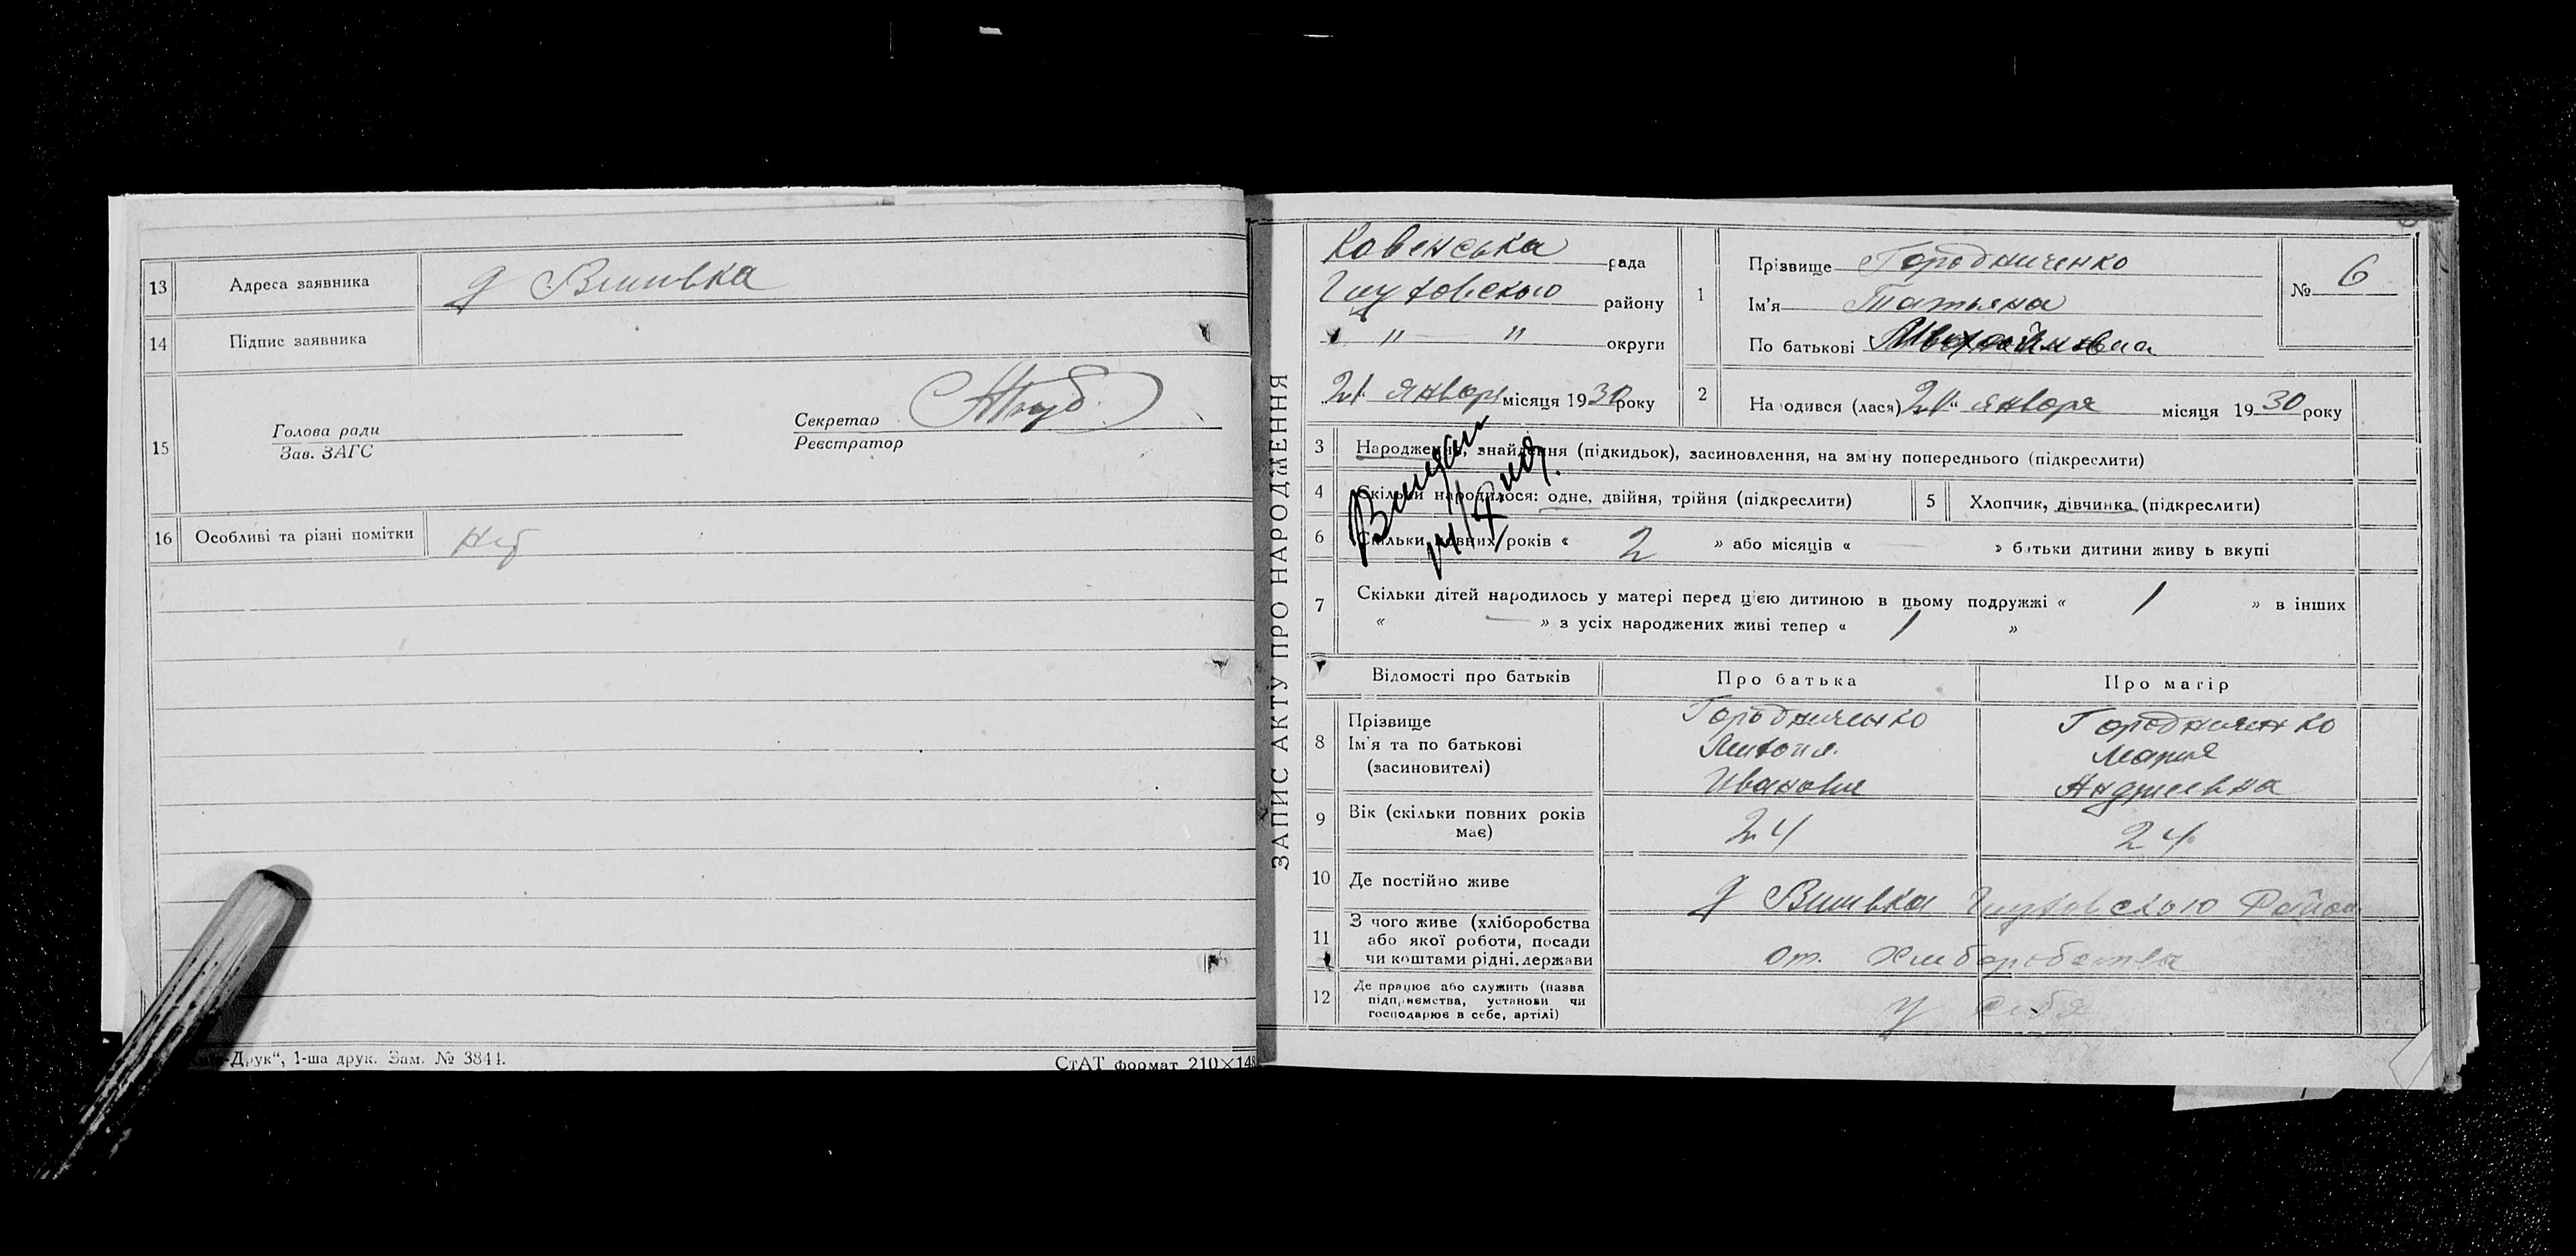 13 Адреса заявника
14 Підпис заявника
15 Голова ради
Зав. ЗАГС
Секретар
Реєстратор
16 Особливі та різні помітки
Друк“, 1-ша друк. Зам. № 3844.
СтАТ формат 210×148
ЗАПИС АКТУ ПРО НАРОДЖЕННЯ
Ковенська рада
району
„ — „ округи
21 января місяця 1930 року
1 Прізвище Городниченко
Ім'я Татьяна
По батькові
№ 6
2 Народився (лася) 21 января місяця 1930 року
3 Народження, знайдення (підкидьок), засиновлення, на зміну попереднього (підкреслити)
4 Скільки народилося: одне, двійня, трійня (підкреслити)
5 Хлопчик, дівчинка (підкреслити)
6 Скільки повних років « 2 » або місяців « — » батьки дитини живуть вкупі
7 Скільки дітей народилось у матері перед цією дитиною в цьому подружжі « 1 » в інших
« — » з усіх народжених живі тепер « 1 »
Відомості про батьків
Про батька
Про матір
8 Прізвище
Ім'я та по батькові
(засиновителі)
Городниченко
Иванович
Городниченко
Мария
Андреевна
9 Вік (скільки повних років
має)
24
24
10 Де постійно живе
11 З чого живе (хліборобства
або якої роботи, посади
чи коштами рідні, держави
от хлиборобства
12 Де працює або служить (назва
підприємства, установи чи
господарює в себе, артілі)
у себя